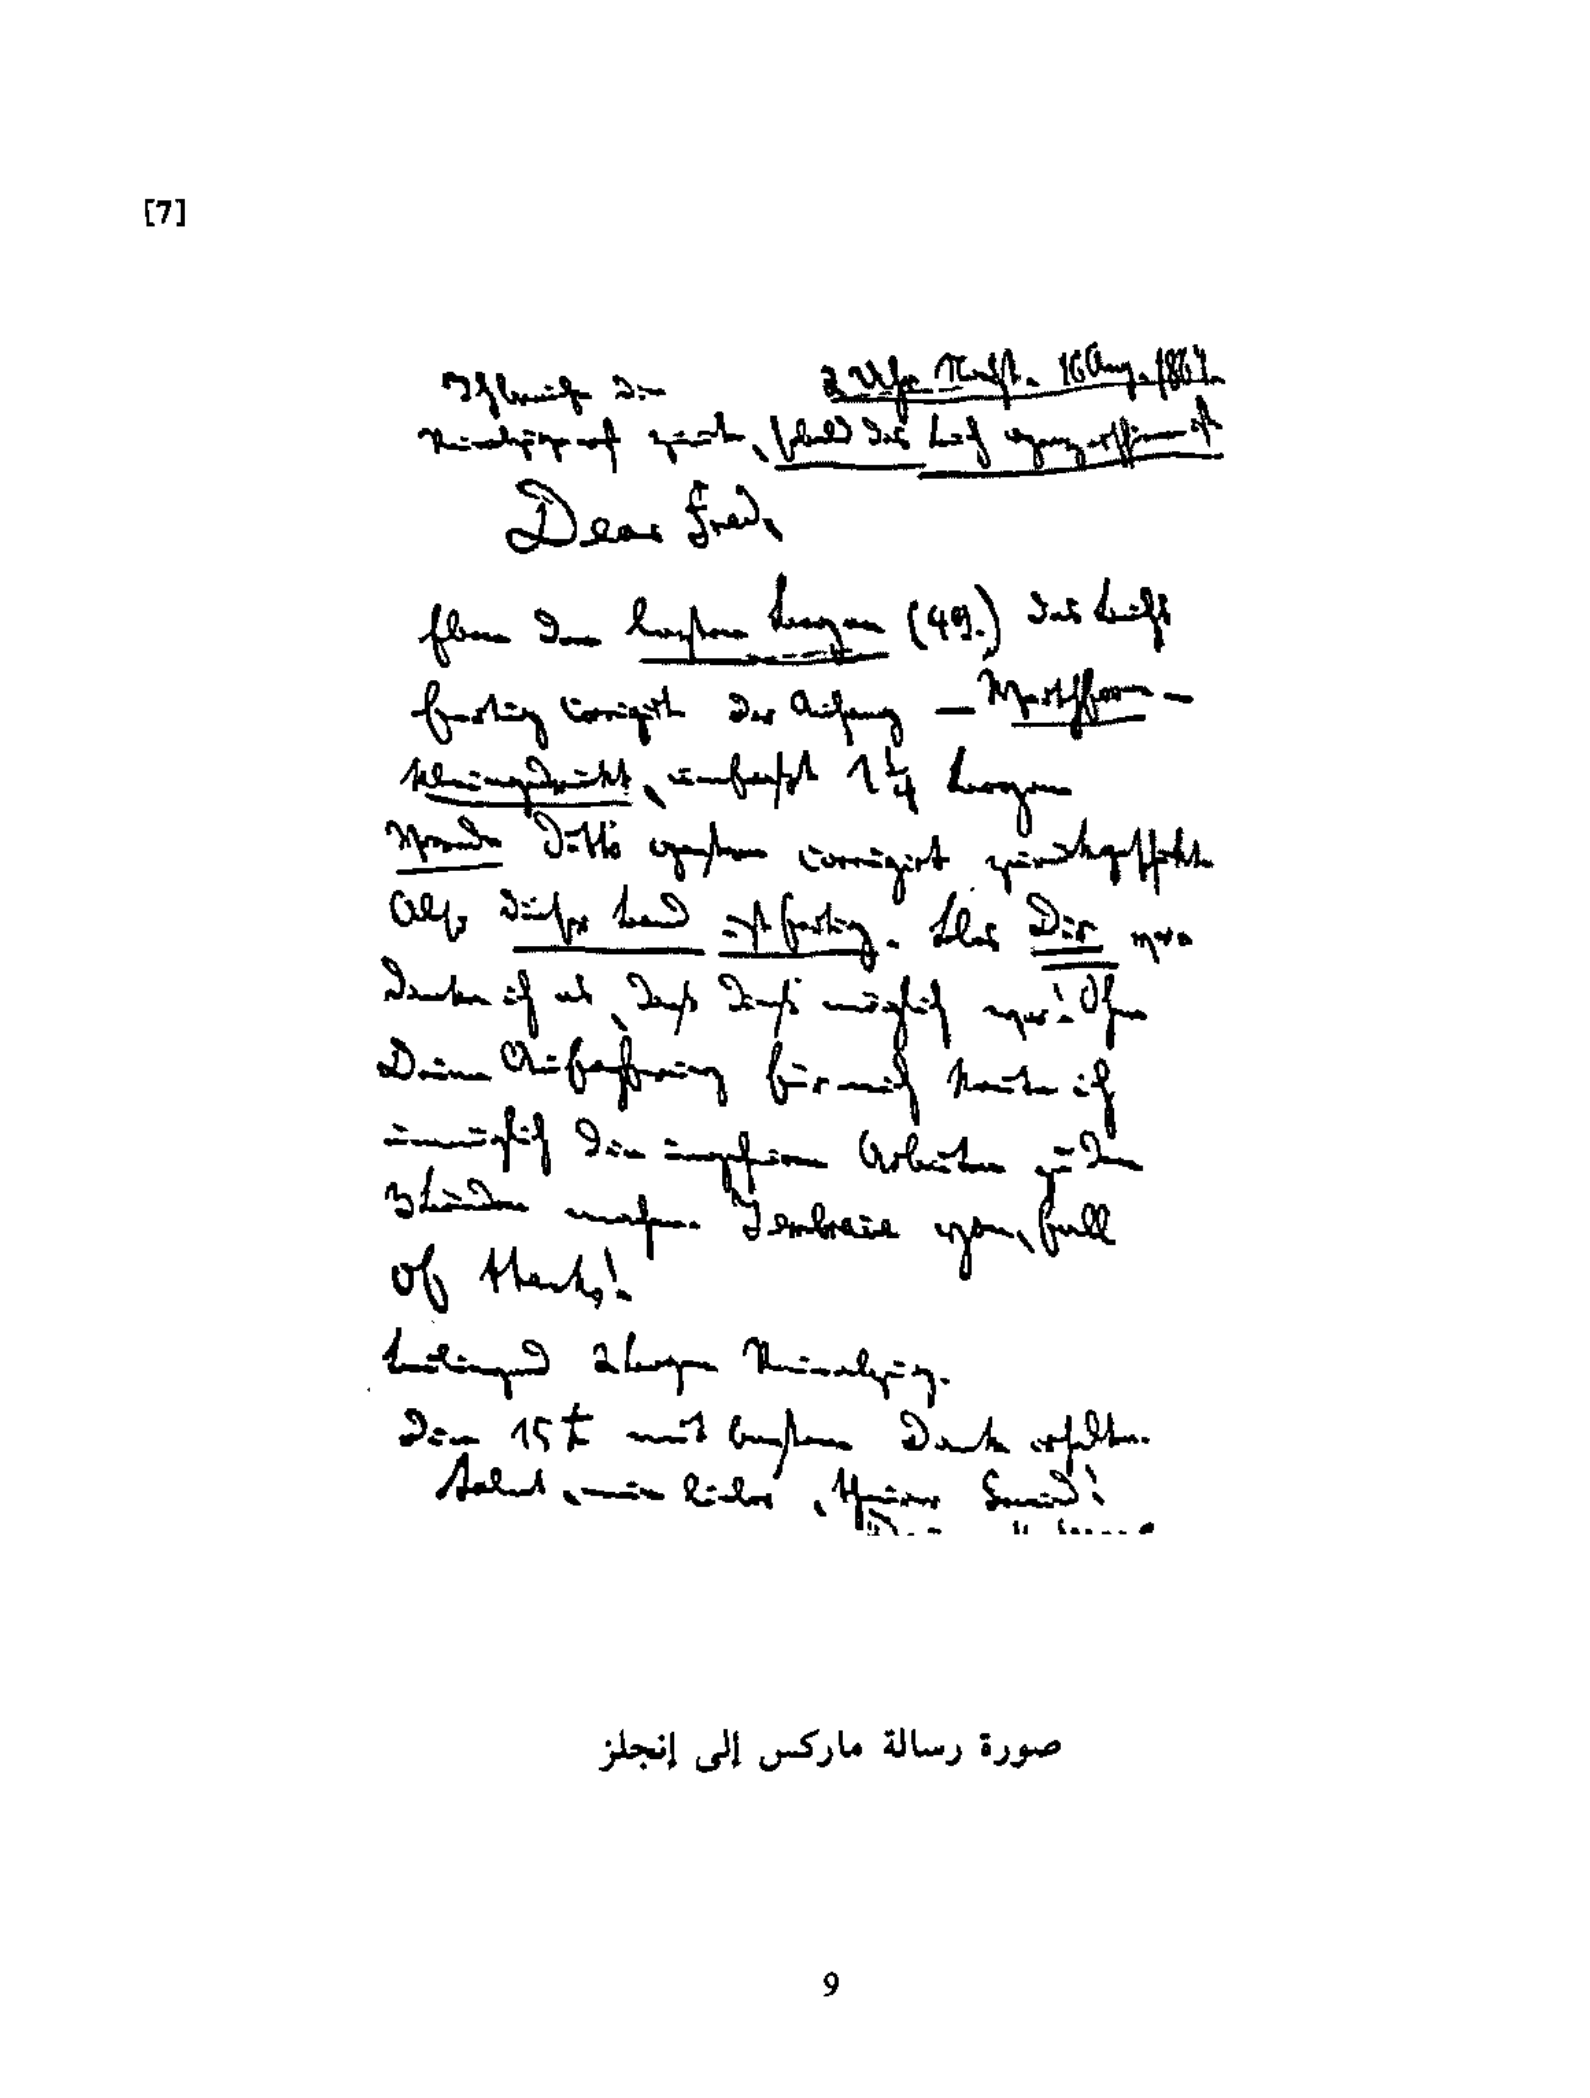 [7]
2 Uhr Nacht. 16 Aug. 1867.
Dear Fred,
Eben den letzten Bogen (49.) des Buchs
fertig corrigirt. Der Anhang — Werthform —
kleingedruckt, umfaßt 1 1/4 Bogen.
Vorrede ditto gestern corrigirt zurückgeschickt.
Also dieser Band ist fertig. Blos Dir
danke ich es, daß dieß möglich war! Ohne
Deine Aufopfrung für mich konnte ich
unmöglich die ungeheuren Arbeiten zu den
3 Bänden machen. I embrace you, full
of thanks!
Beiliegend 2 Bogen Reinabzug.
Die 15 £ mit bestem Dank erhalten.
Salut, mein lieber, theurer Freund!
صورة رسالة ماركس إلى إنجلز
9